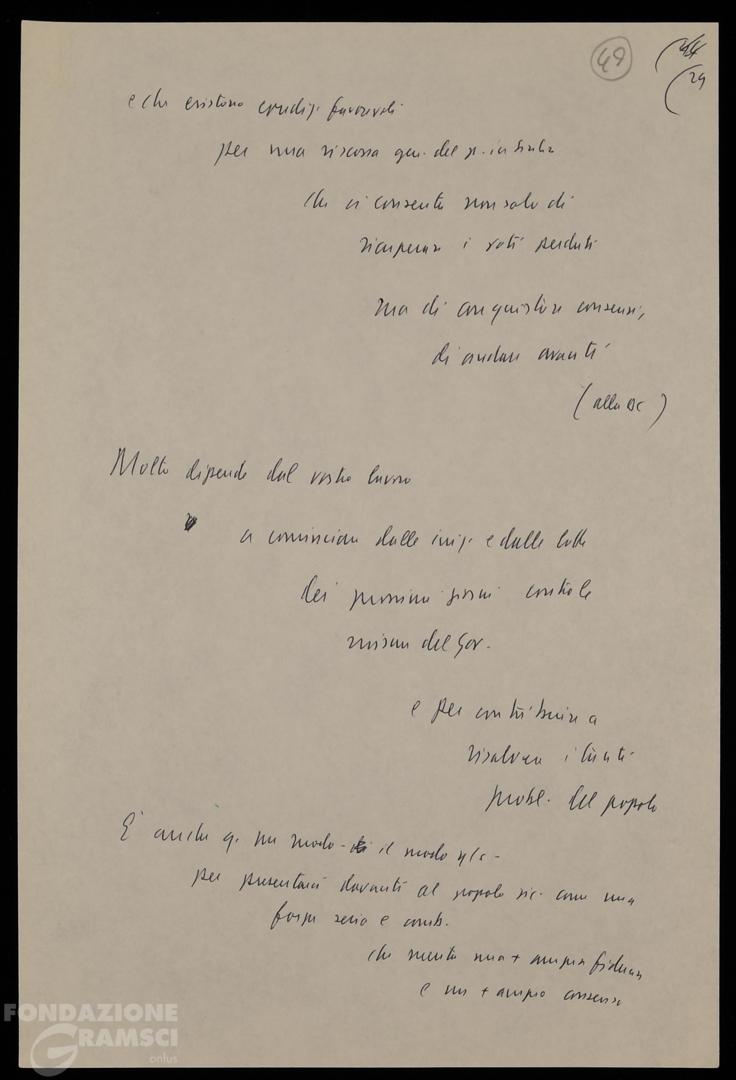 49
44
29
e che esistono condiz. favorevoli
per una riscossa gen. del p. in Italia
che ci consenta non solo di
recuperare i voti perduti
ma di conquistare consensi,
di andare avanti
(alla DC)
Molto dipende dal vostro lavoro
a cominciare dalle iniz. e dalle lotte
dei prossimi giorni contro le
misure del Gov.
e per contribuire a
risolvere i tanti
probl. del popolo
È anche q. un modo - il modo
per presentarci davanti al popolo sic. come una
forza seria e comb.
che merita una + ampia fiducia
e un + ampio consenso
FONDAZIONE
GRAMSCI
onlus